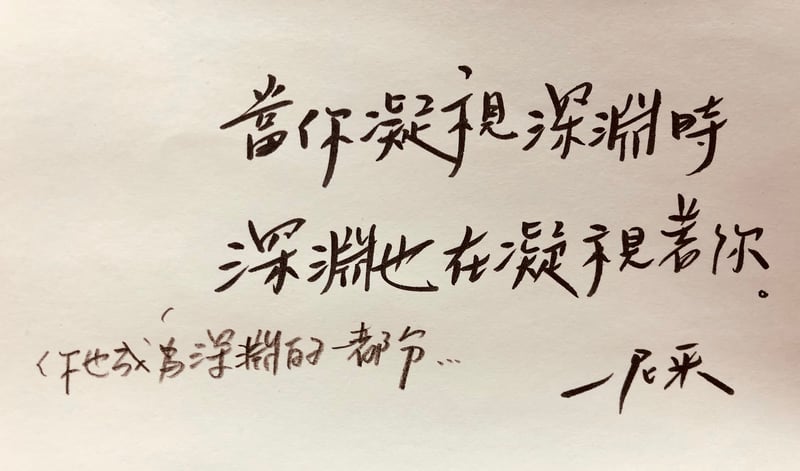 當你凝視深淵時
深淵也在凝視著你。
你也成為深淵的一部分...
—尼采